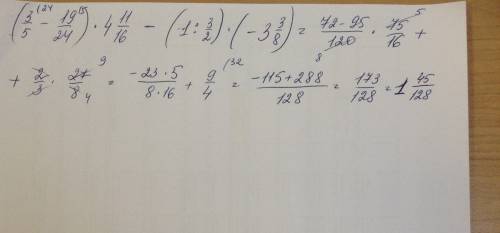 (3/5^(24 - 19/24^(5) · 4 11/16 - (-1 : 3/2) · (-3 3/8) = 72-95/120 8 · 75/16 5 +
+ 2/3 · 27/8 9 4 = -23·5/8·16 + 9/4^(32 = -115+288/128 = 173/128 = 1 45/128